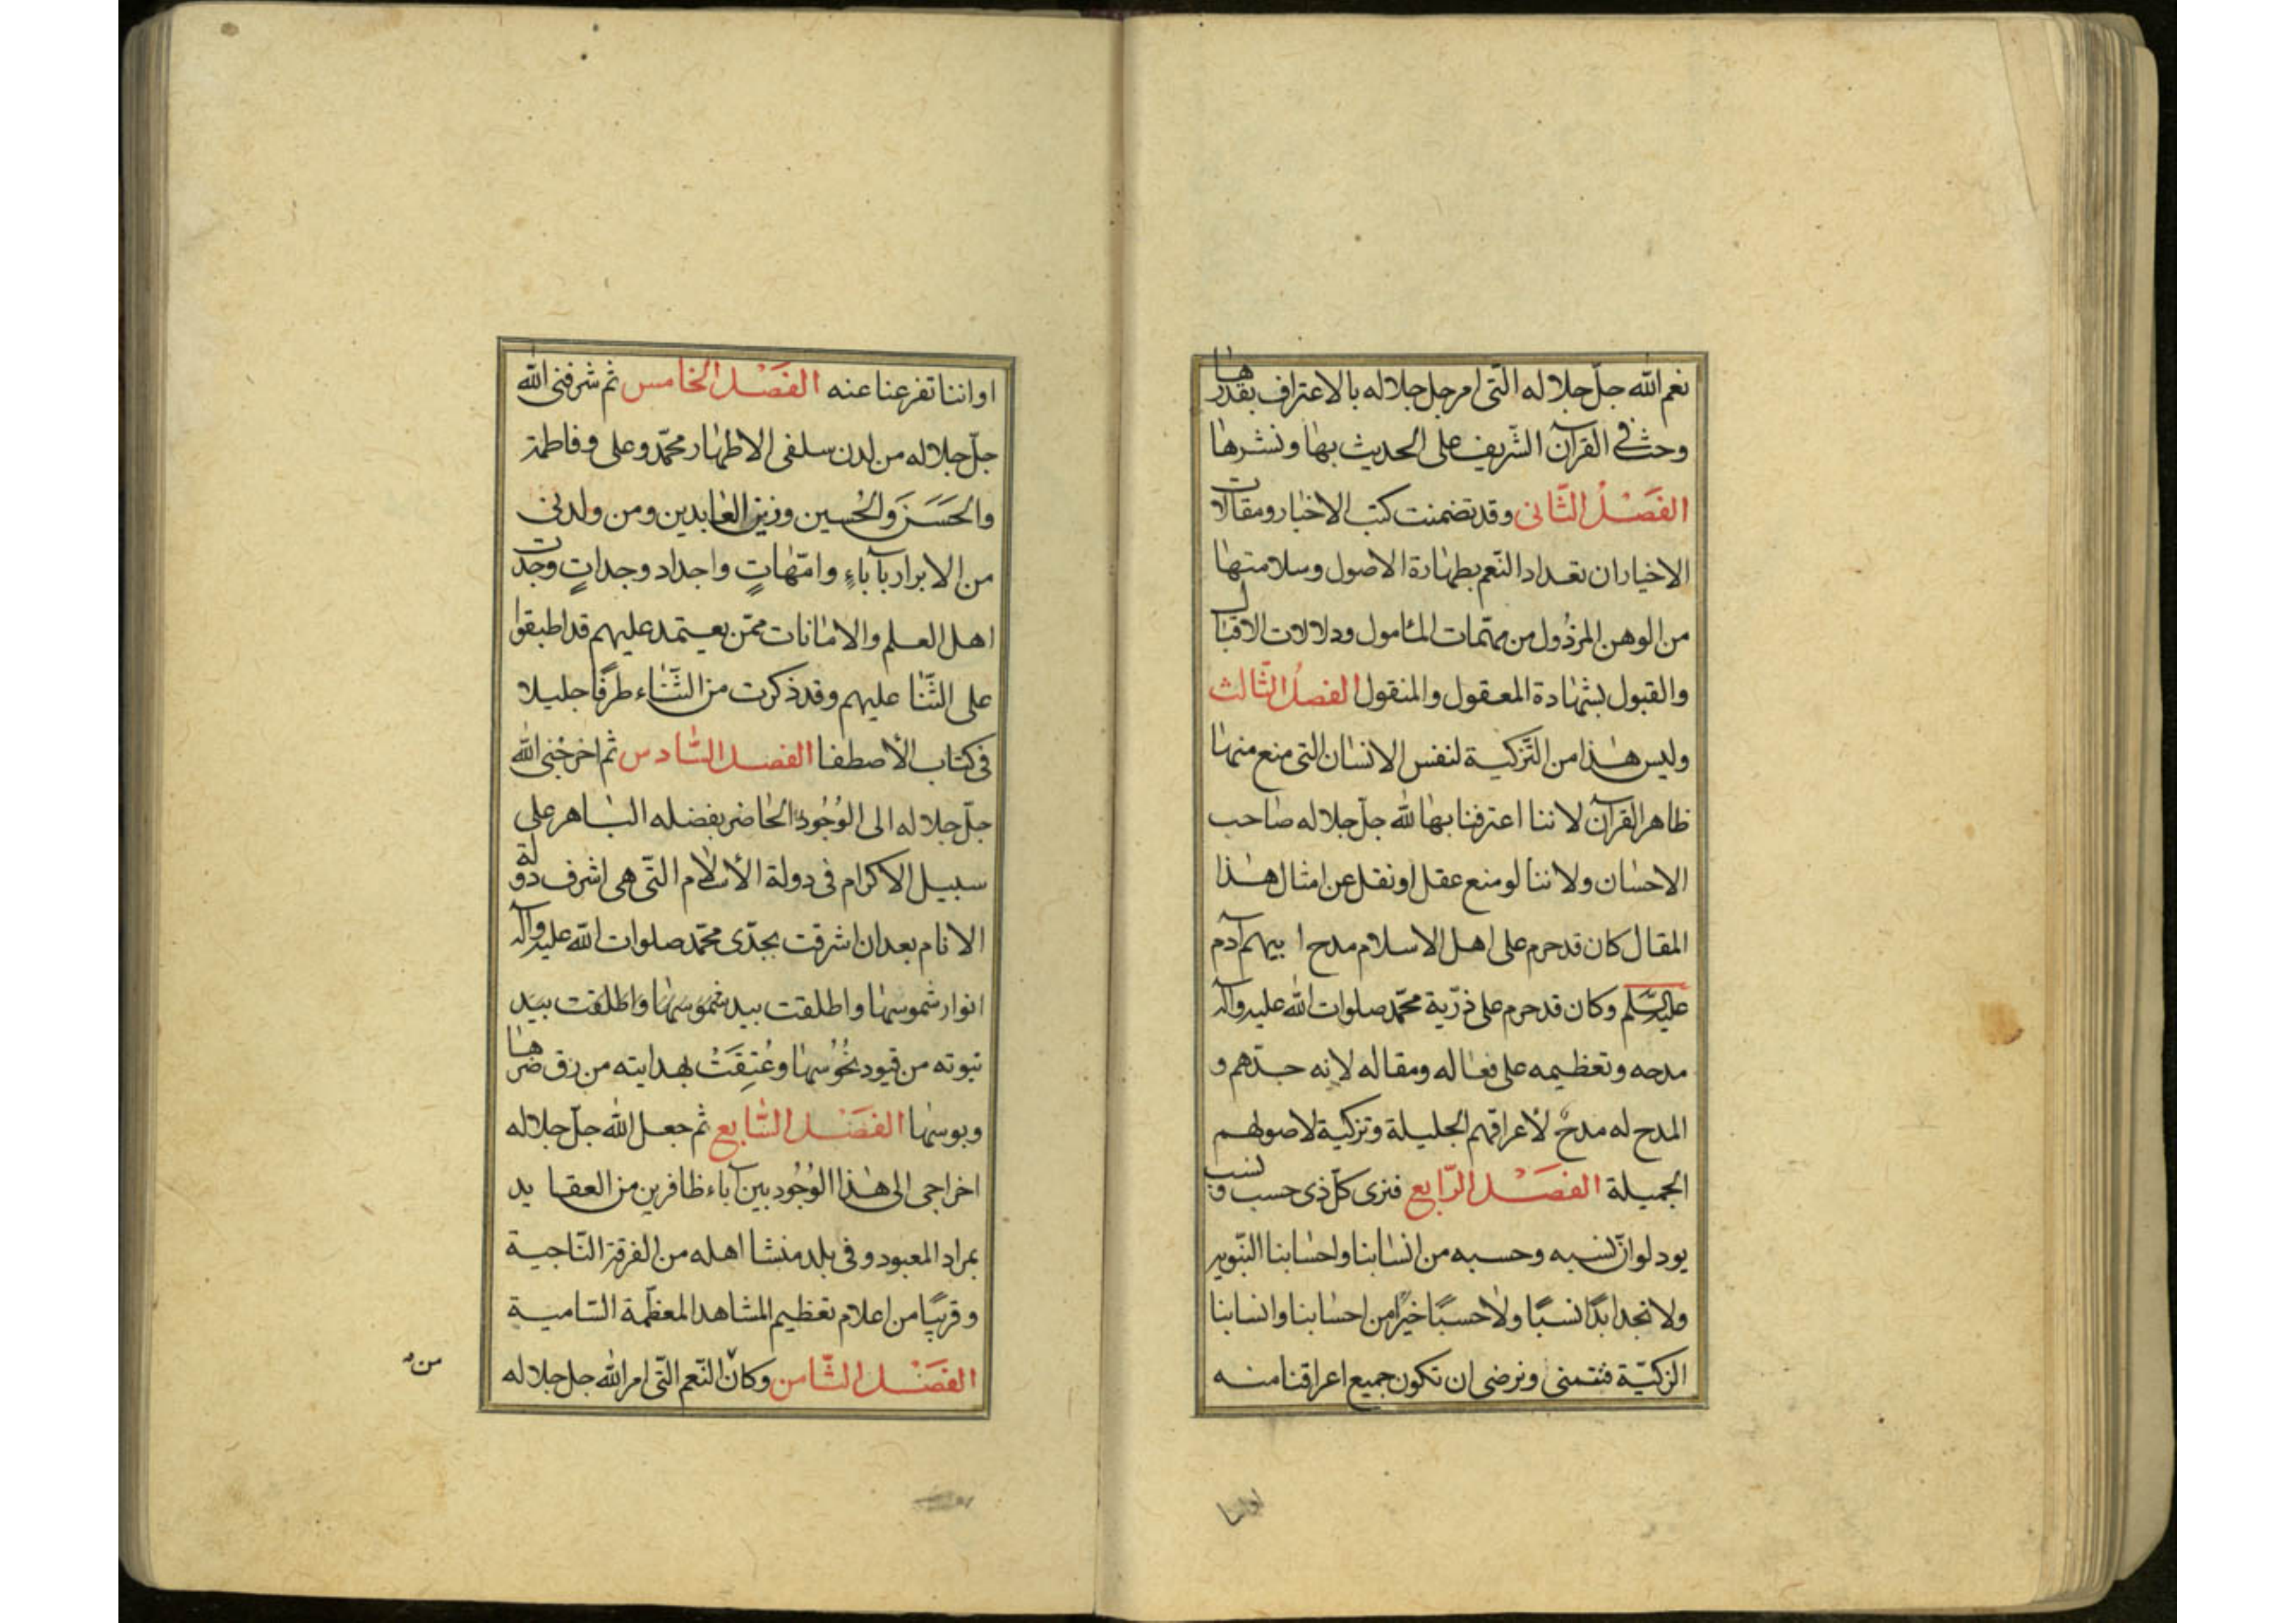 نعم الله جلّ جلاله الّتى امر جل جلاله بالاعتراف بقدرها
وحث فى القرآن الشّريف على الحديث بها ونشرها
الفَصْلُ الثّانى وقد تضمنت كتب الاخبار ومقالات
الاخيار ان تعداد النّعم بطهارة الاصول وسلامتها
من الوهن المرذول من مهمّات المأمول ودلالات الاقبال
والقبول بشهادة المعقول والمنقول الفصلُ الثّالث
وليس هذا من التّزكية لنفس الانسان التى منع منها
ظاهر القرآن لاننا اعترفنا بها لله جلّ جلاله صاحب
الاحسان ولاننا لو منع عقل او نقل عن امثال هذا
المقال كان قد حرم على اهل الاسلام مدح ابيهم آدم
عليه السّلم وكان قد حرم على ذرّية محمّد صلوات الله عليه وآله
مدحه وتعظيمه على فعاله ومقاله لانه جدّهم و
المدح له مدحٌ لأعراقهم الجليلة وتزكية لاصولهم
الجميلة الفصْل الرّابع فنرى كلّ ذى حسب ونسب
يود لو انّ نسبه وحسبه من انسابنا واحسابنا النّبويه
ولا نجد ابدًا نسبًا ولا حسبًا خيرًا من احسابنا وانسابنا
الزكيّة فنتمنى ونرضى ان تكون جميع اعراقنا منه
اواننا
اواننا تفرعنا عنه الفصْل الخامس ثم شرفنى الله
جلّ جلاله من لدن سلفى الاطهار محمّد وعلى وفاطمة
والحَسَن والحُسين وزين العابدين ومن ولدنى
من الابرار بآباءٍ وامّهاتٍ واجداد وجداتٍ وجدت
اهل العلم والامانات ممّن يعتمد عليهم قد اطبقوا
على الثّنا عليهم وقد ذكرت من الثّناء طرفًا جليلا
فى كتاب الأصطفا الفصل السّادس ثم اخرجنى الله
جلّ جلاله الى الوُجُود الحاضر بفضله الباهر على
سبيل الاكرام فى دولة الأسلام التّى هى اشرف دولة
الانام بعد ان اشرقت بجدّى محمّد صلوات الله عليه وآله
انوار شموسها واطلقت بيد شموسها واطلقت بيد
نبوته من قيود نحُوُسها وعُتِقَتْ بهدايته من رق ضرها
وبوسها الفصْل السّابع ثم جعل الله جلّ جلاله
اخراجى الى هذا الوُجُود بين آباء ظافرين من العقايد
بمراد المعبود وفى بلد منشا اهله من الفرقة النّاجية
وقريبًا من اعلام تعظيم المشاهد المعظّمة السّامية
الفصْل الثّامن وكان النّعم التّى امر الله جل جلاله
من